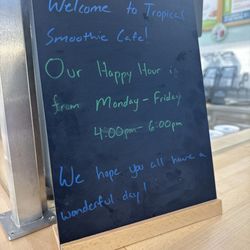 Welcome to Tropical
Smoothie Cafe!
Our Happy Hour is
from Monday - Friday
4:00pm - 6:00pm
We hope you all have a
wonderful day!